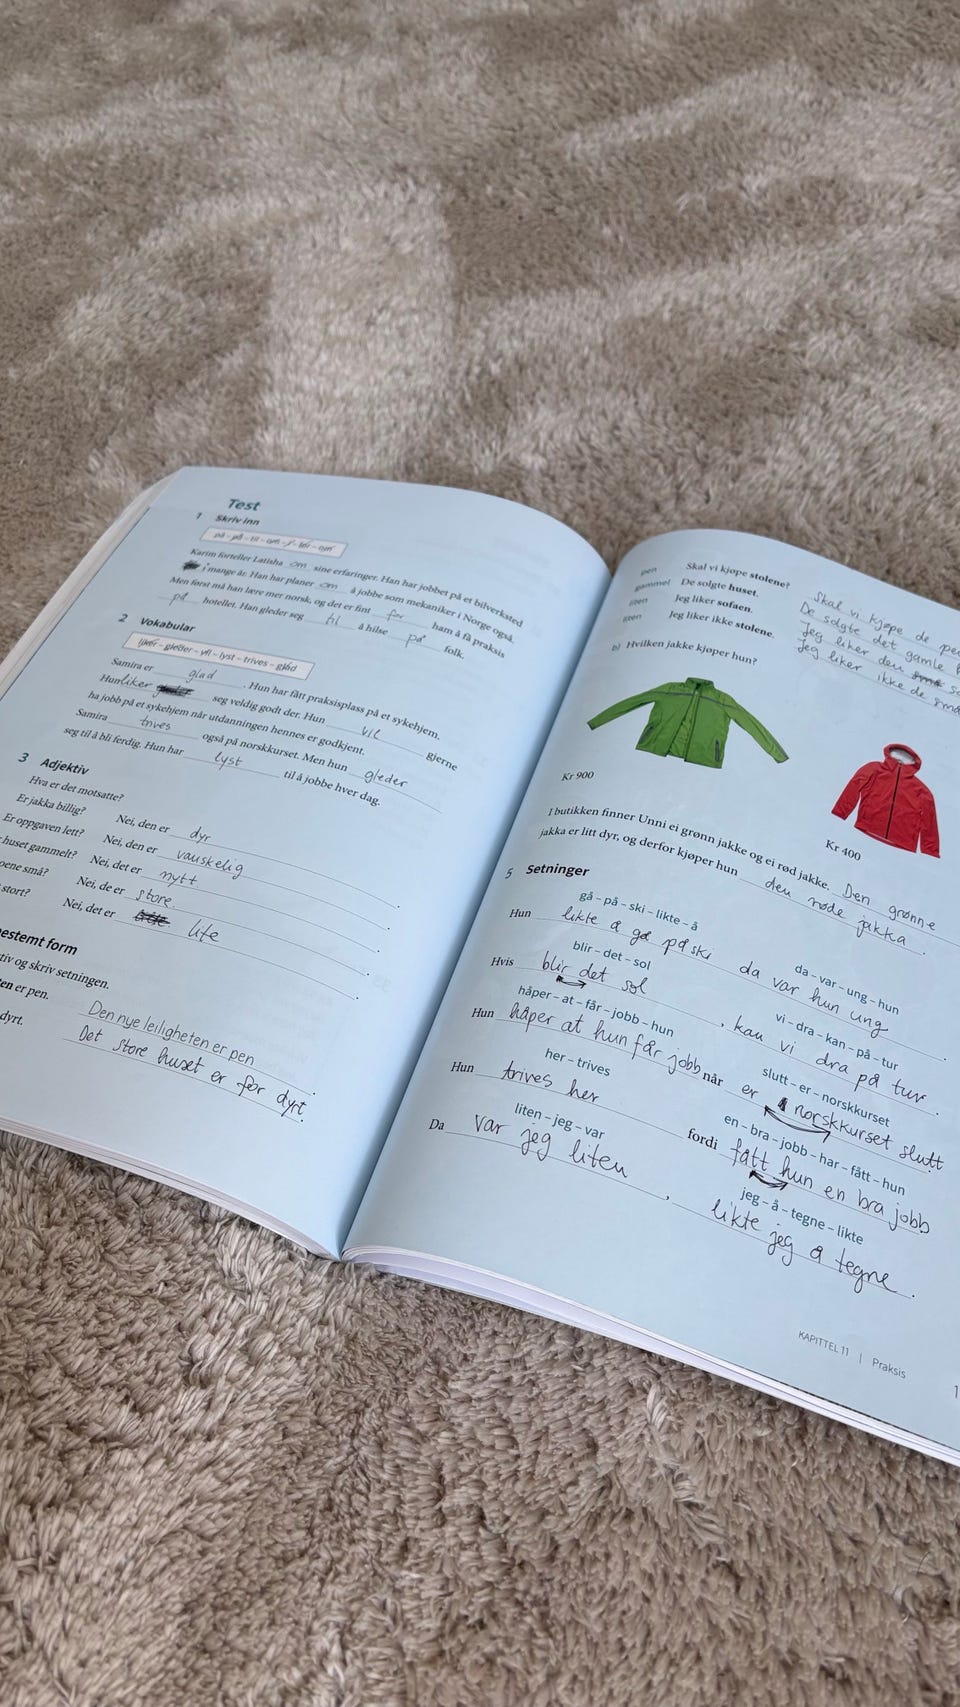 Test
1 Skriv inn
på – på – til – om – i – for – om
Karim forteller Latisha om sine erfaringer. Han har jobbet på et bilverksted
i mange år. Han har planer om å jobbe som mekaniker i Norge også.
Men først må han lære mer norsk, og det er fint for ham å få praksis
på hotellet. Han gleder seg til å hilse på folk.
2 Vokabular
liker – gleder – vil – lyst – trives – glad
Samira er glad. Hun har fått praksisplass på et sykehjem.
Hun liker seg veldig godt der. Hun vil gjerne
ha jobb på et sykehjem når utdanningen hennes er godkjent.
Samira trives også på norskkurset. Men hun gleder
seg til å bli ferdig. Hun har lyst til å jobbe hver dag.
3 Adjektiv
Hva er det motsatte?
Er jakka billig? Nei, den er dyr.
Er oppgaven lett? Nei, den er vanskelig.
huset gammelt? Nei, det er nytt.
små? Nei, de er store.
stort? Nei, det er lite.
bestemt form
og skriv setningen.
er pen. Den nye leiligheten er pen.
dyrt. Det store huset er for dyrt.
pen Skal vi kjøpe stolene? Skal vi kjøpe de
gammel De solgte huset. De solgte det gamle
liten Jeg liker sofaen. Jeg liker den
liten Jeg liker ikke stolene. Jeg liker ikke de små
b) Hvilken jakke kjøper hun?
Kr 900
Kr 400
I butikken finner Unni ei grønn jakke og ei rød jakke. Den grønne
jakka er litt dyr, og derfor kjøper hun den røde jakka.
5 Setninger
gå – på – ski – likte – å
da – var – ung – hun
Hun likte å gå på ski da var hun ung.
blir – det – sol
vi – dra – kan – på – tur
Hvis blir det sol, kan vi dra på tur.
håper – at – får – jobb – hun
slutt – er – norskkurset
Hun håper at hun får jobb når er norskkurset slutt.
her – trives
en – bra – jobb – har – fått – hun
Hun trives her fordi fått hun en bra jobb.
liten – jeg – var
jeg – å – tegne – likte
Da var jeg liten, likte jeg å tegne.
KAPITTEL 11 | Praksis